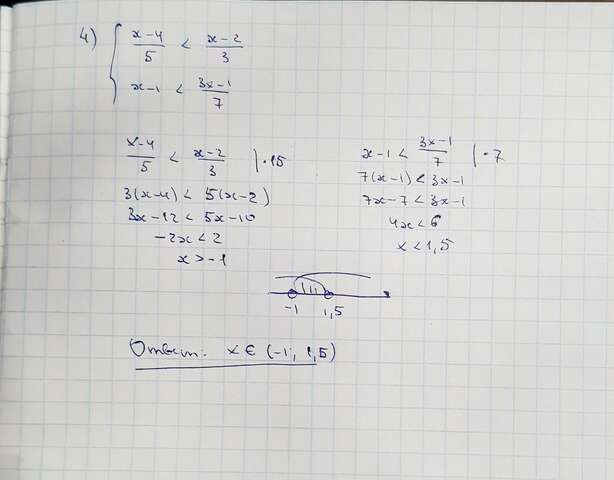 4) { x-4/5 < x-2/3
x-1 < 3x-1/7
x-4/5 < x-2/3 | · 15
3(x-4) < 5(x-2)
3x-12 < 5x-10
-2x < 2
x > -1
x-1 < 3x-1/7 | · 7
7(x-1) < 3x-1
7x-7 < 3x-1
4x < 6
x < 1,5
-1 1,5
Ответ: x ∈ (-1; 1,5)